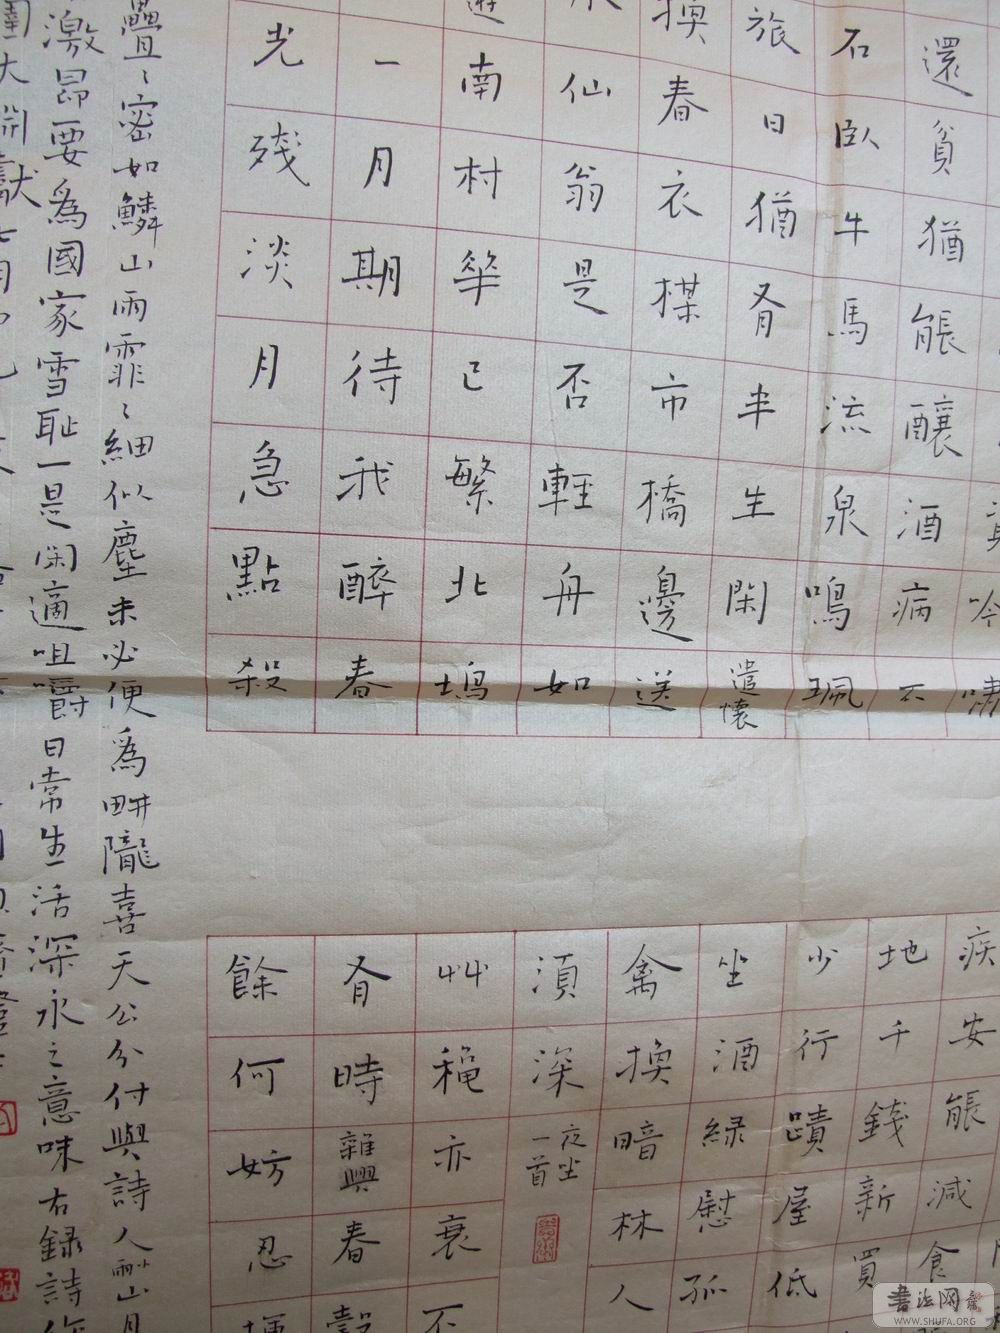 吟嘯
還貧猶能釀酒病不
石臥牛馬流泉鳴珮
旅日猶有半生閑遣懷
換春衣楪市橋邊送
仙翁是否輕舟如
遊南村華已繁北塢
一月期待我醉春
光殘淡月急點殺
疾安能減食
地千錢新買
少行蹟屋低
坐酒綠慰孤
禽換暗林人
須深夜坐一首
艸稏亦衰不
有時雜興春穀
餘何妨忍
疊〻密如鱗山雨霏〻細似塵未必便為畊隴喜天公分付與詩人山月
激昂要為國家雪恥一是閑適咀嚼日常生活深永之意味右錄詩
大開獻
書法网
WWW.SHUFA.ORG